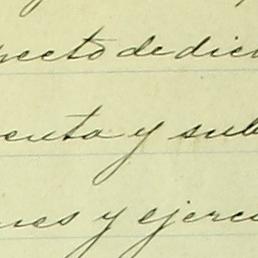 pecto de dici
cuta y sub
nes y ejerc